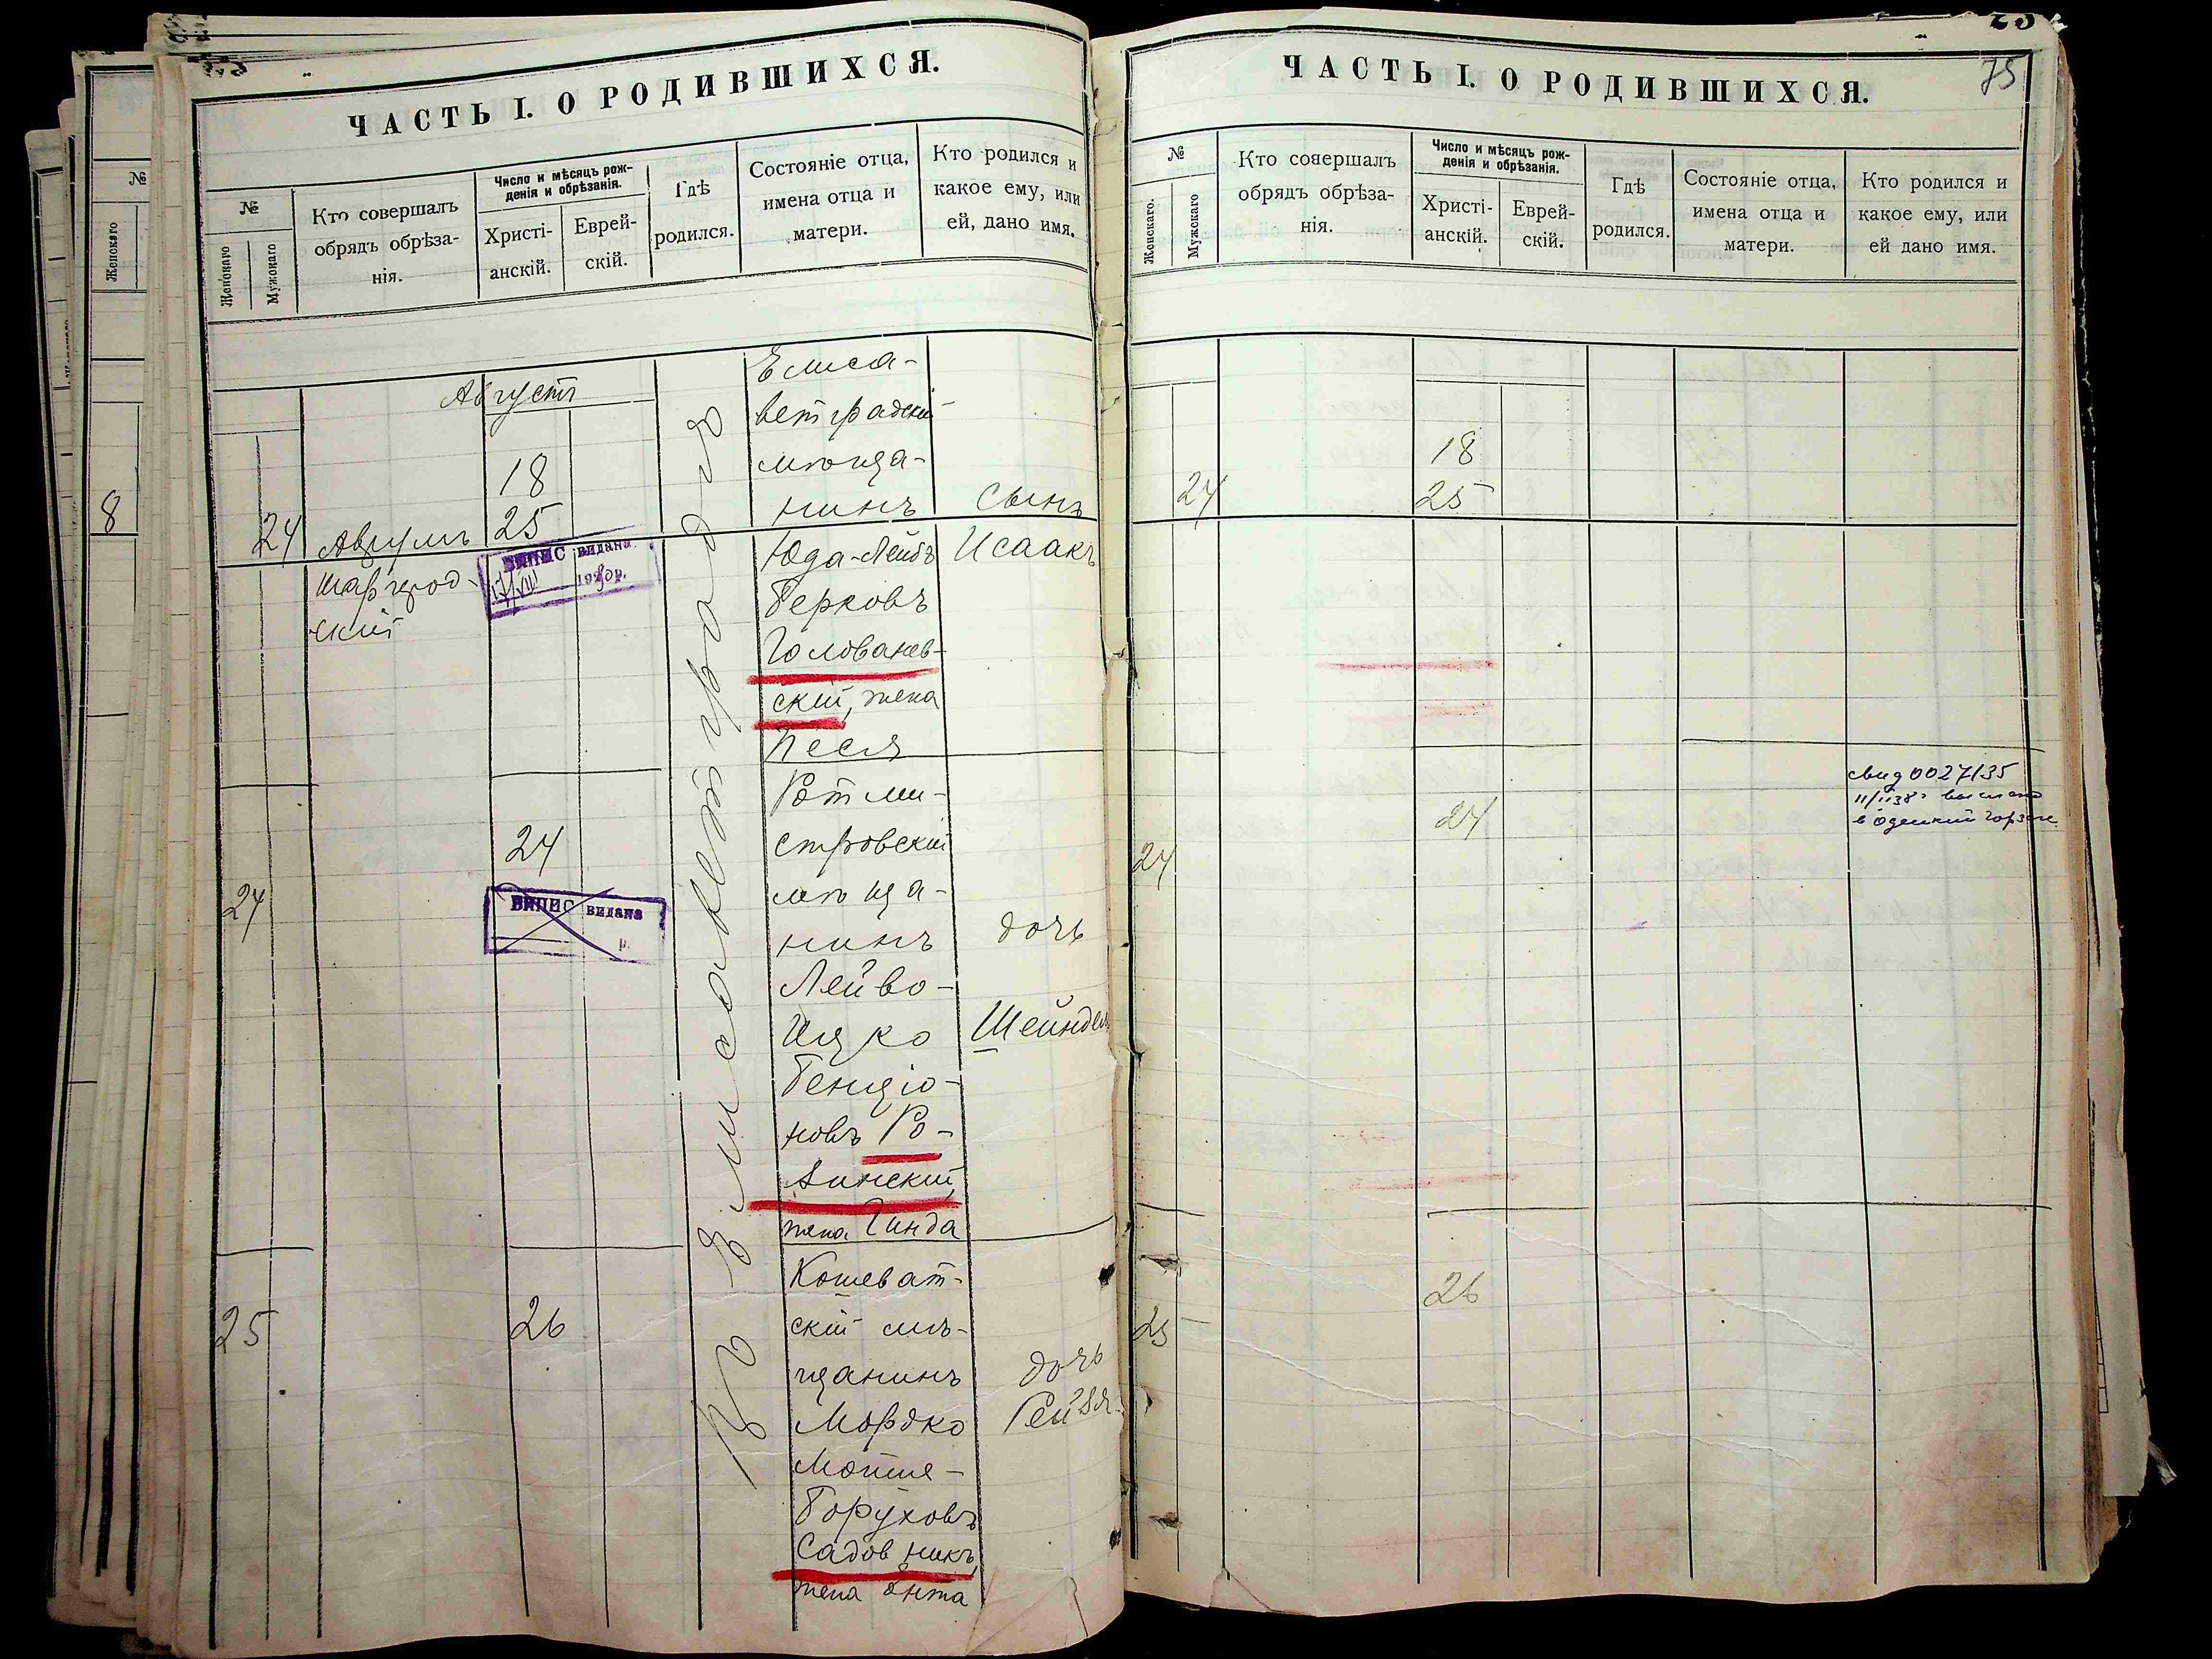 ЧАСТЬ I. О РОДИВШИХСЯ.
№
Женскаго
Мужскаго
Кто совершалъ
обрядъ обрѣза-
нія.
Число и мѣсяцъ рож-
денія и обрѣзанія.
Христі-
анскій.
Еврей-
скій.
Гдѣ
родился.
Состояніе отца,
имена отца и
матери.
Кто родился и
какое ему, или
ей, дано имя.
Августъ
24
18
25
Шаргород-
скій
ВИПИС видана
Въ Елисаветградѣ
Елиса-
ветградскій
мѣща-
нинъ
Юда-Лейбъ
Берковъ
Голованев-
скій, жена
Песя
сынъ
Исаакъ
24
24
ВИПИС видана
р.
Ротми-
стровскій
мѣща-
нинъ
Лейво-
Ицко
Бенціо-
новъ Ро-
зинскій,
жена Гинда
дочь
Шейндля
25
26
Кошеват-
скій мѣ-
щанинъ
Мордко
Мотте-
Боруховъ
Садовникъ,
жена Энта
дочь
Рейзя
№
Женскаго
8
75
ЧАСТЬ I. О РОДИВШИХСЯ.
№
Женскаго.
Мужскаго
Кто совершалъ
обрядъ обрѣза-
нія.
Число и мѣсяцъ рож-
денія и обрѣзанія.
Христі-
анскій.
Еврей-
скій.
Гдѣ
родился.
Состояніе отца,
имена отца и
матери.
Кто родился и
какое ему, или
ей дано имя.
24
18
25
24
24
свид 0027135
в Одеский Горзагс
25
26